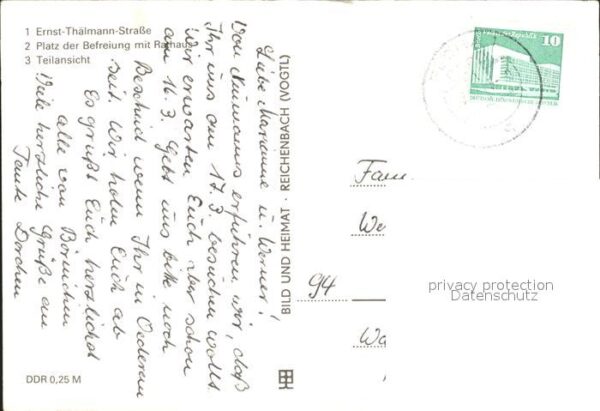 1 Ernst-Thälmann-Straße
2 Platz der Befreiung mit Rathaus
3 Teilansicht
Liebe Marianne u. Werner!
Von Naumanns erfuhren wir, daß
Ihr uns am 17.3 besuchen wollt.
Wir erwarten Euch aber schon
am 16.3. Gebt uns bitte noch
Bescheid wenn Ihr in Oederan
seit. Wir holen Euch ab
Es grüßt Euch herzlichst
alle von Börnichen
Viele herzliche Grüße von
Tante Dorchen
BILD UND HEIMAT · REICHENBACH (VOGTL)
DDR 0,25 M
10
Fam
We
94
Wa
privacy protection
Datenschutz